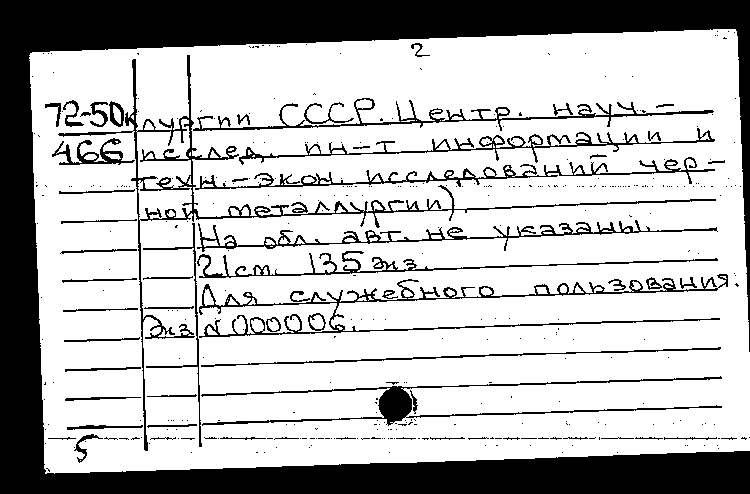 2
72-50к лургии СССР. Центр. науч.-
466 исслед. ин-т информации и
техн.-экон. исследований чер-
ной металлургии).
На обл. авт. не указаны.
21 cm. 135 экз.
Для служебного пользования.
Экз N 000006.
5